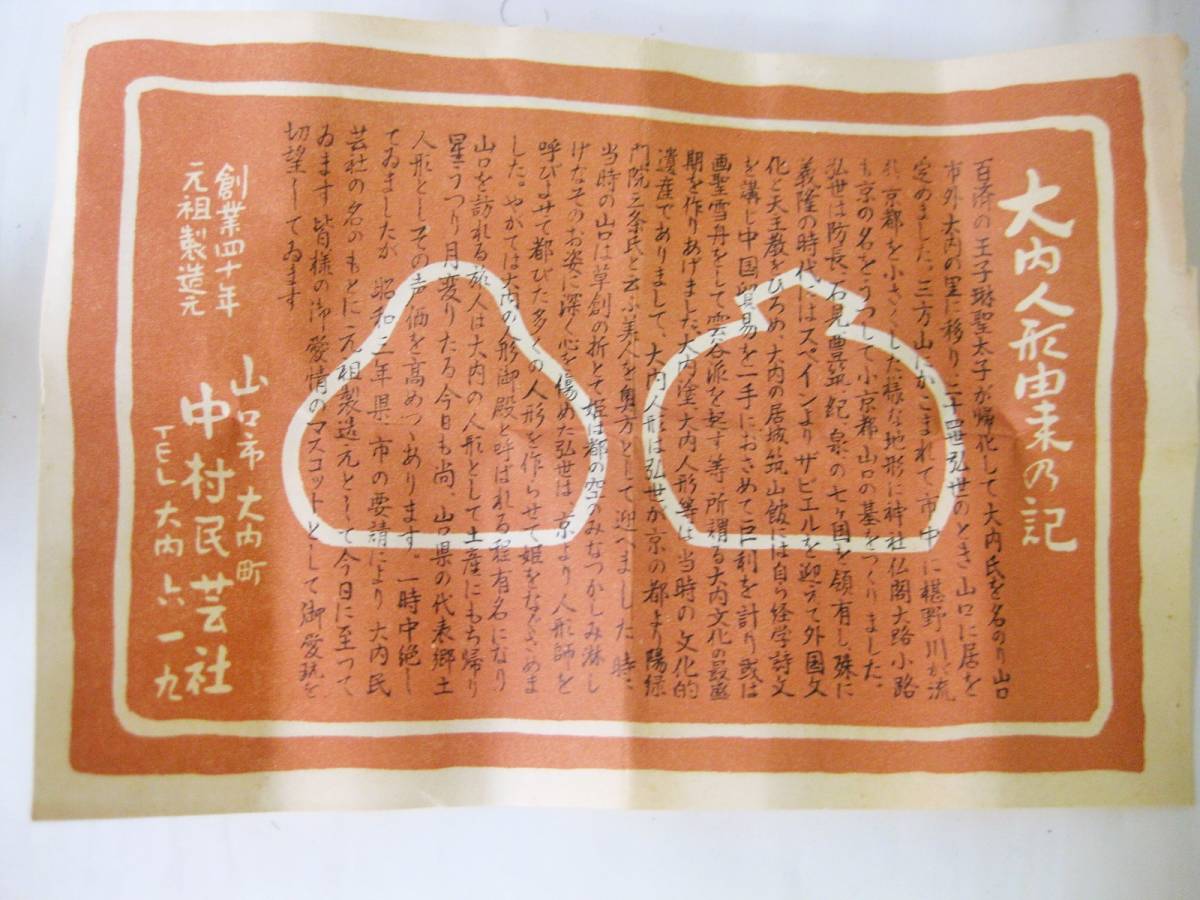 大内人形由来の記
百済の王子琳聖太子が帰化して大内氏を名のり山口
市外大内の里に移り二十四世弘世のとき山口に居を
定めました。三方山にかこまれて市中に椹野川が流
れ、京都を小さくした様な地形に神社仏閣大路小路
も京の名をうつして小京都山口の基をつくりました。
弘世は防長、石見、豊、筑、紀、泉の七ヶ国を領有し、殊に
義隆の時代にはスペインよりザビエルを迎えて外国文
化と天主教をひろめ、大内の居城筑山館には自ら経学詩文
を講じ中国貿易を一手におさめて巨利を計り或は
画聖雪舟をして雲谷派を起す等所謂る大内文化の最盛
期を作りあげました大内塗、大内人形等は当時の文化的
遺産でありまして、大内人形は弘世が京の都より陽緑
門院三条氏と云ふ美人を奥方として迎へました時に
当時の山口は草創の折とて姫は都の空のみなつかしみ淋し
げなそのお姿に深く心を傷めた弘世は、京より人形師を
呼びよせて都びた多くの人形を作らせて姫をなぐさめま
した。やがては大内の人形御殿と呼ばれる程有名になり
山口を訪れる旅人は大内の人形として土産にもち帰り
星うつり月変りたる今日も尚、山口県の代表郷土
人形としてその声価を高めつゝあります。一時中絶し
てゐましたが昭和三年県、市の要請により大内民
芸社の名のもとに元祖製造元として今日に至って
ゐます皆様の御愛情のマスコットとして御愛玩を
切望してゐます
創業四十年
元祖製造元
山口市大内町
中村民芸社
TEL大内六一九